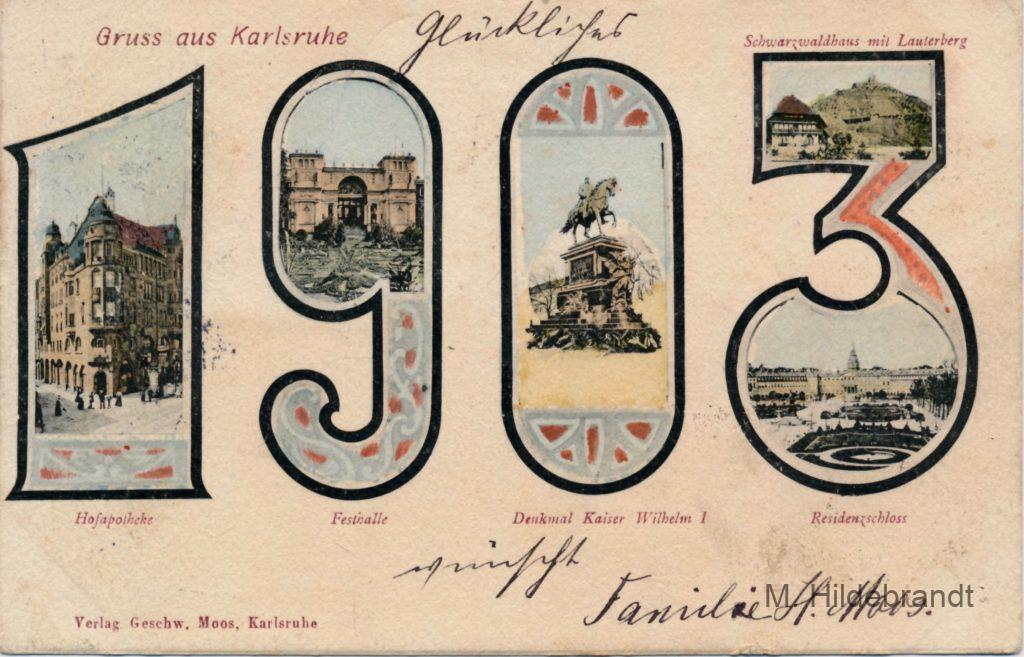 Gruss aus Karlsruhe
Glückliches
Schwarzwaldhaus mit Lauterberg
1903
Hofapotheke
Festhalle
Denkmal Kaiser Wilhelm I
Residenzschloss
wünscht
Familie H. Moos.
M. Hildebrandt
Verlag Geschw. Moos, Karlsruhe